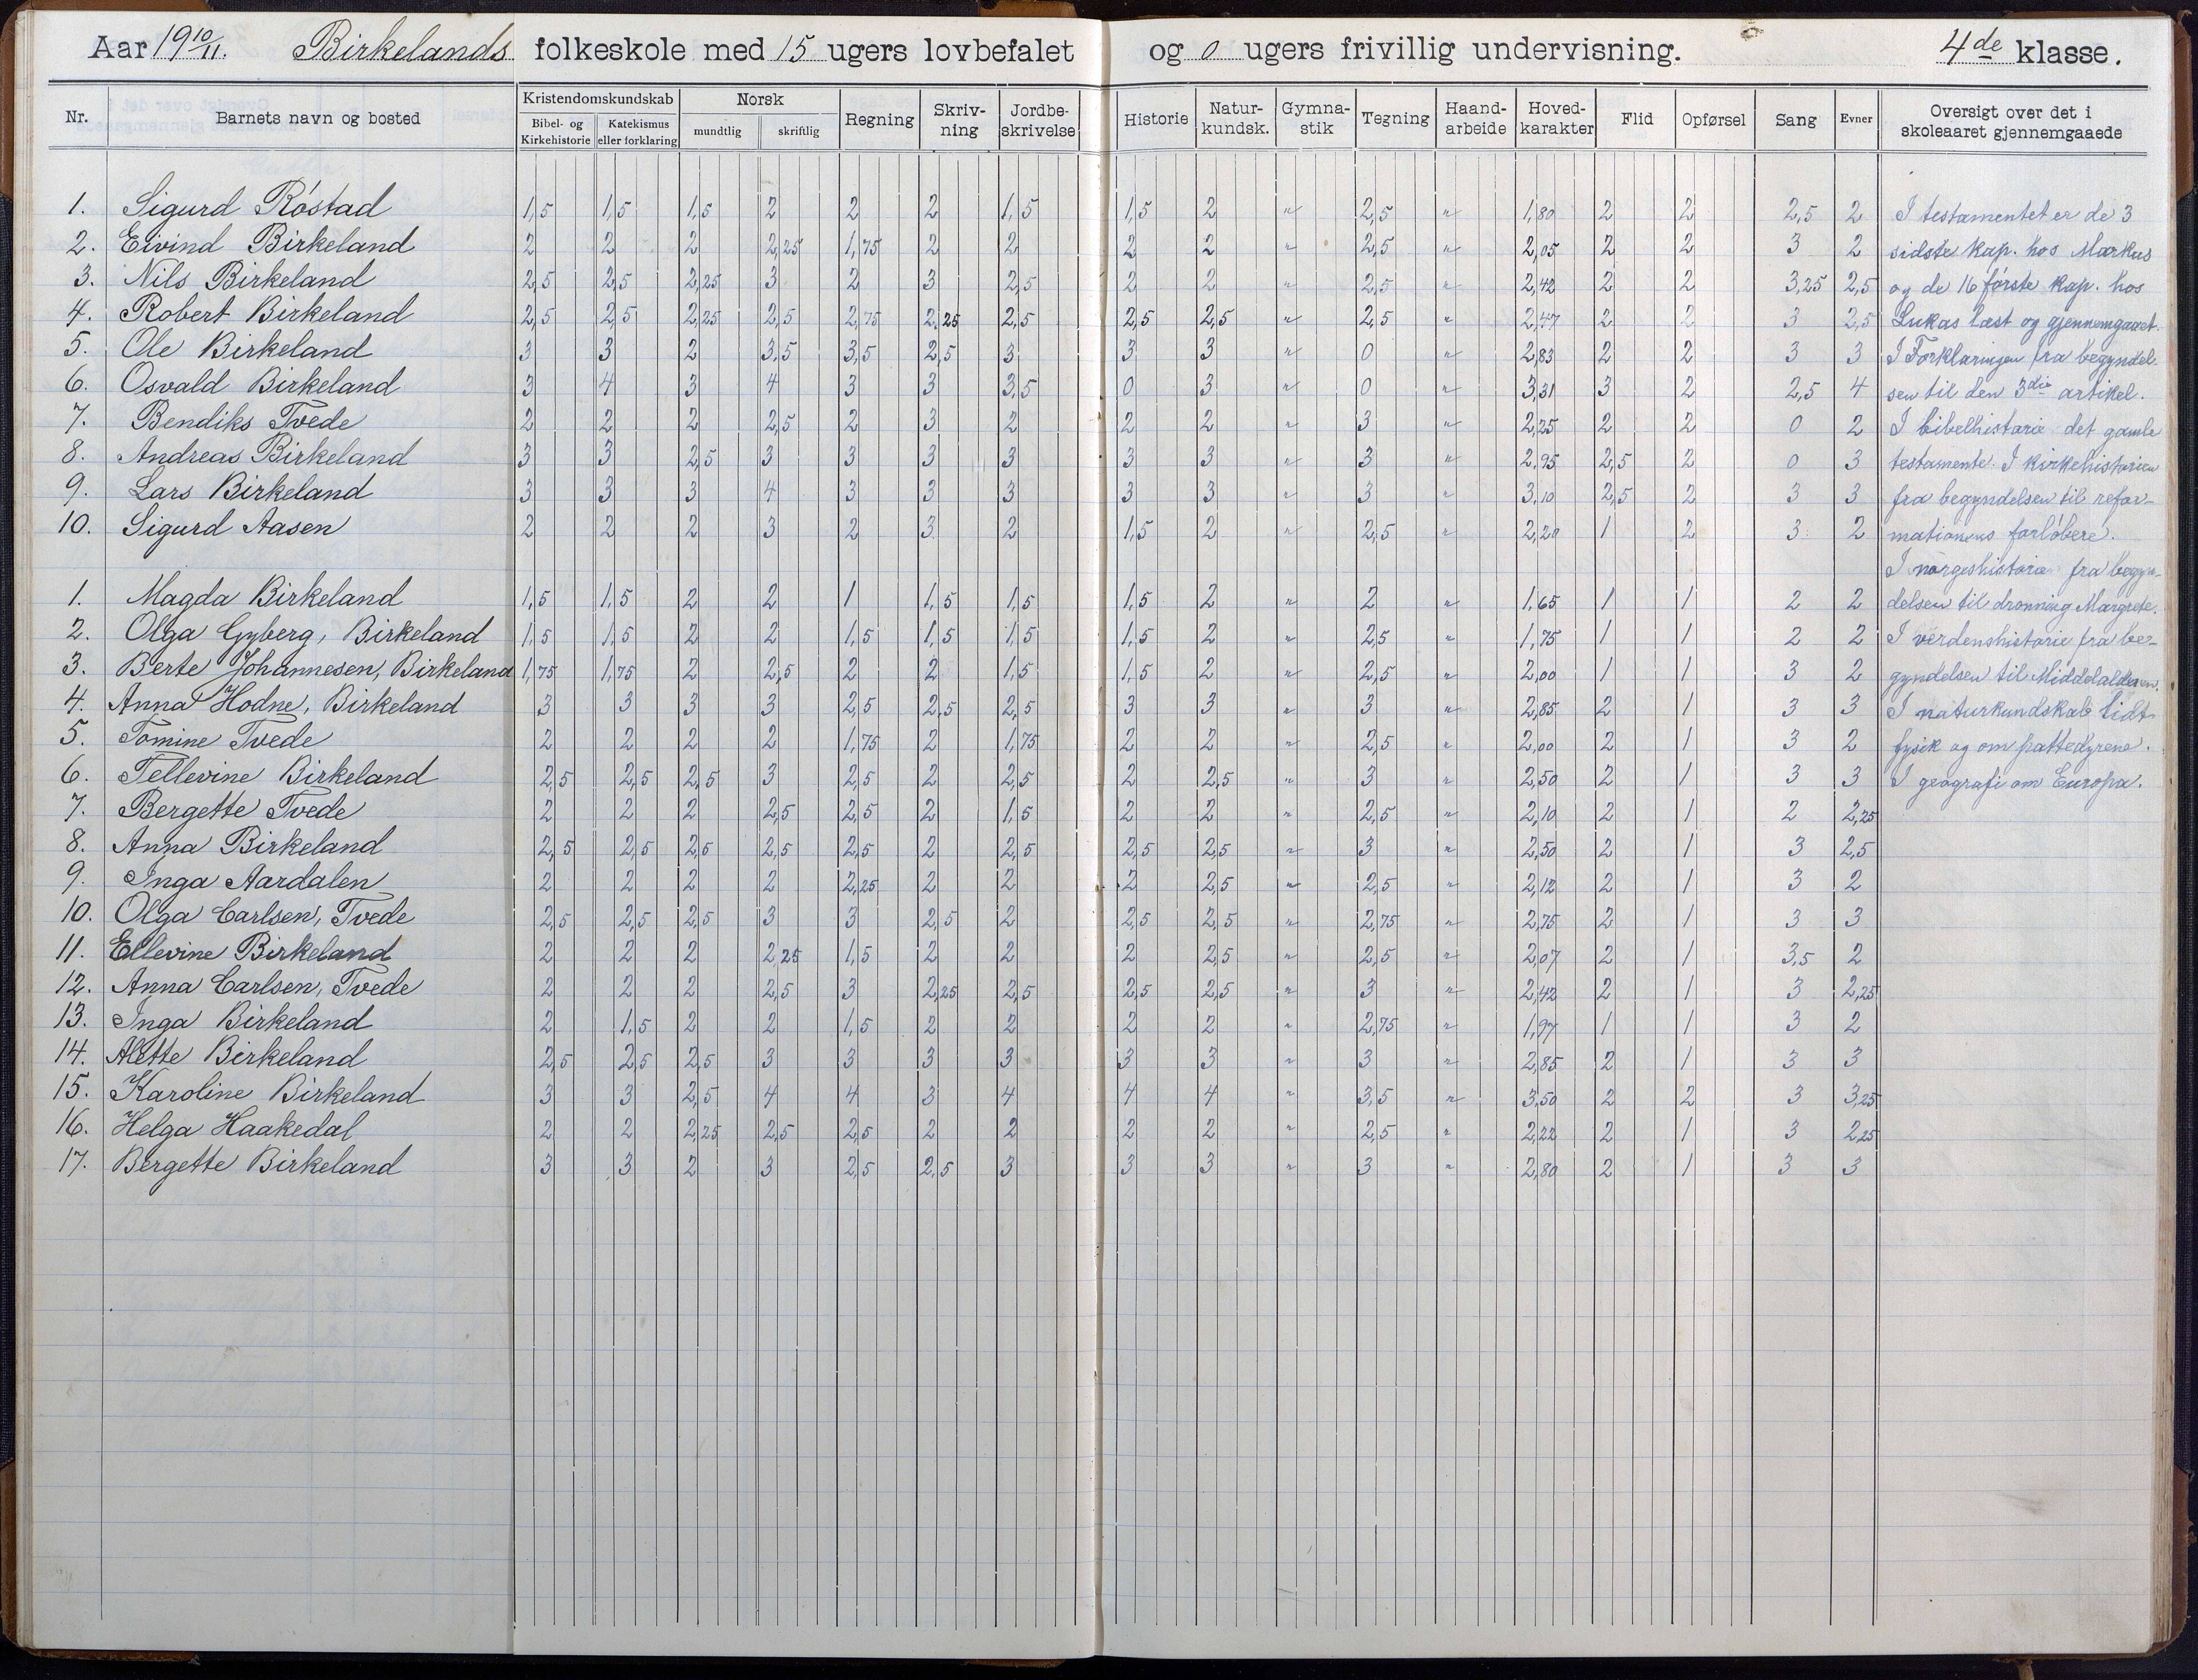 Aar 19 10/11. Birkelands folkeskole med 15 ugers lovbefalet og 0 ugers frivillig undervisning. 4de klasse.
Nr. Barnets navn og bosted Kristendomskundskab Bibel- og Kirkehistorie Katekismus eller forklaring Norsk mundtlig skriftlig Regning Skriv-ning Jordbe-skrivelse Historie Natur-kundsk. Gymna-stik Tegning Haand-arbeide Hoved-karakter Flid Opførsel Sang Evner Oversigt over det i skoleaaret gjennemgaaede
1. Sigurd Röstad 1,5 1,5 1,5 2 2 2 1,5 1,5 2 " 2,5 " 1,80 2 2 2,5 2 I testamentet er de 3
2. Eivind Birkeland 2 2 2 2,25 1,75 2 2 2 2 " 2,5 " 2,05 2 2 3 2 sidste kap. hos Markus
3. Nils Birkeland 2,5 2,5 2,25 3 2 3 2,5 2 2 " 2,5 " 2,42 2 2 3,25 2,5 og de 16 første kap. hos
4. Robert Birkeland 2,5 2,5 2,25 2,5 2,75 2,25 2,5 2,5 2,5 " 2,5 " 2,47 2 2 3 2,5 Lukas læst og gjennemgaaet.
5. Ole Birkeland 3 3 2 3,5 3,5 2,5 3 3 3 " 0 " 2,83 2 2 3 3 I Forklaringen fra begyndel-
6. Osvald Birkeland 3 4 3 4 3 3 3,5 0 3 " 0 " 3,31 3 2 2,5 4 sen til den 3die artikel.
7. Bendiks Tvede 2 2 2 2,5 2 3 2 2 2 " 3 " 2,25 2 2 0 2 I bibelhistorie det gamle
8. Andreas Birkeland 3 3 2,5 3 3 3 3 3 3 " 3 " 2,95 2,5 2 0 3 testamente. I kirkehistorien
9. Lars Birkeland 3 3 3 4 3 3 3 3 3 " 3 " 3,10 2,5 2 3 3 fra begyndelsen til refor-
10. Sigurd Aasen 2 2 2 3 2 3 2 1,5 2 " 2,5 " 2,20 1 2 3 2 mationens forløbere.
I norgeshistorie fra begyn-
1. Magda Birkeland 1,5 1,5 2 2 1 1,5 1,5 1,5 2 " 2 " 1,65 1 1 2 2 delsen til dronning Margrete.
2. Olga Gyberg, Birkeland 1,5 1,5 2 2 1,5 1,5 1,5 1,5 2 " 2,5 " 1,75 1 1 2 2 I verdenshistorie fra be-
3. Berte Johannesen, Birkeland 1,75 1,75 2 2,5 2 2 1,5 1,5 2 " 2,5 " 2,00 1 1 3 2 gyndelsen til Middelalderen.
4. Anna Hodne, Birkeland 3 3 3 3 2,5 2,5 2,5 3 3 " 3 " 2,85 2 1 3 3 I naturkundskab lidt
5. Tomine Tvede 2 2 2 2 1,75 2 1,75 2 2 " 2,5 " 2,00 2 1 3 2 fysik og om pattedyrene.
6. Tellevine Birkeland 2,5 2,5 2,5 3 2,5 2 2,5 2 2,5 " 3 " 2,50 2 1 3 3 I geografi om Europa.
7. Bergette Tvede 2 2 2 2,5 2,5 2 1,5 2 2 " 2,5 " 2,10 2 1 2 2,25
8. Anna Birkeland 2,5 2,5 2,5 2,5 2,5 2 2,5 2,5 2,5 " 3 " 2,50 2 1 3 2,5
9. Inga Aardalen 2 2 2 2 2,25 2 2 2 2,5 " 2,5 " 2,12 2 1 3 2
10. Olga Carlsen, Tvede 2,5 2,5 2,5 3 3 2,5 2 2,5 2,5 " 2,75 " 2,75 2 1 3 3
11. Ellevine Birkeland 2 2 2 2,25 1,5 2 2 2 2,5 " 2,5 " 2,07 2 1 3,5 2
12. Anna Carlsen, Tvede 2 2 2 2,5 3 2,25 2,5 2,5 2,5 " 3 " 2,42 2 1 3 2,25
13. Inga Birkeland 2 1,5 2 2 1,5 2 2 2 2 " 2,75 " 1,97 1 1 3 2
14. Alette Birkeland 2,5 2,5 2,5 3 3 3 3 3 3 " 3 " 2,85 2 1 3 3
15. Karoline Birkeland 3 3 2,5 4 4 3 4 4 4 " 3,5 " 3,50 2 2 3 3,25
16. Helga Haakedal 2 2 2,25 2,5 2,5 2 2 2 2 " 2,5 " 2,22 2 1 3 2,25
17. Bergette Birkeland 3 3 2 3 2,5 2,5 3 3 3 " 3 " 2,80 2 1 3 3